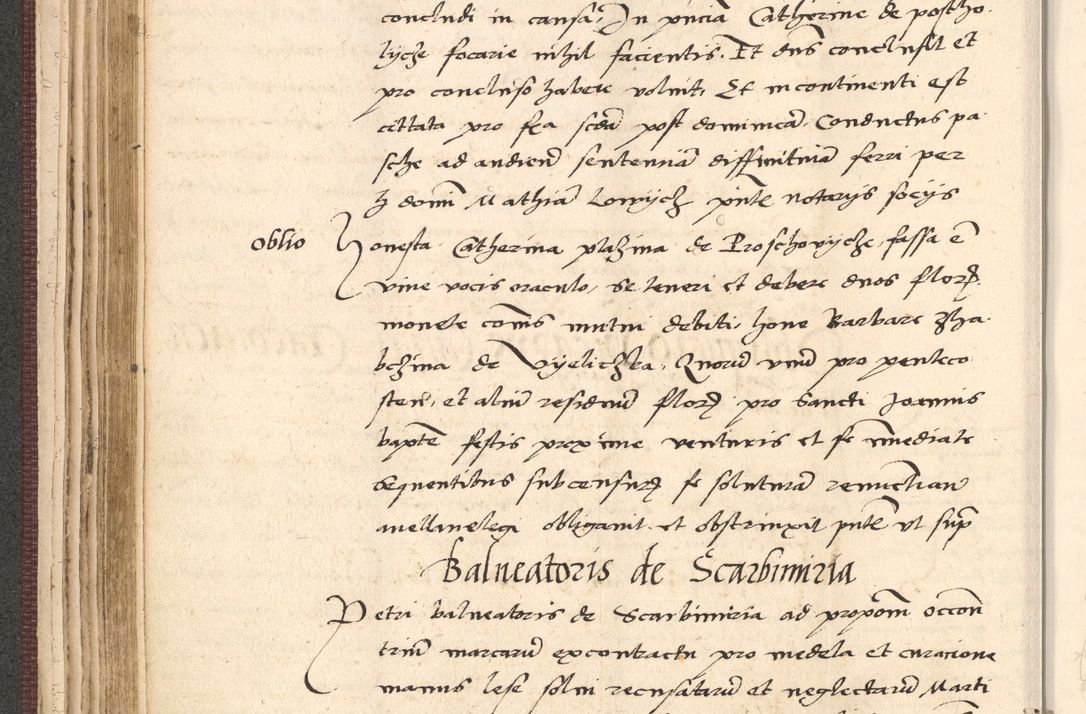 concludi in causa, In pñcia Catherine de postho
lycze focarie nihil facientis. Et dñs conclusit et
pro concluso habere voluit, Et incontinenti est
cittata pro fĩa scđa post dominicã Conductus pa
sche ad audienđ sententiã diffinitiuã ferri per
domĩ Mathiã Lowycz pñte notarijs socijs
Oblio Honesta Catherina plazina de Proschovycze, fassa ẽ
viue vocis oraculo, se teneri et debere duos floŗ
monete comĩs mutui debiti, hone Barbare Zha
bczina de Vyeliczka, Quorũ vnũ pro penteco
steñ, et aliũ residuũ floŗ pro Sancti Joannis
bapte festis proxime venturis et se immediate
sequentibus sub censuŗ se soluturã renunctianđ
auellinelegi obligauit et obstrinxit pñte vt supª
Balneatoris de Scarbimiria
Petri balneatoris de Scarbimiria ad proponđ occoñ
triũ marcarũ ex contractu pro medela et curacione
manus lese solui recusatarũ et neglectarũ Marti